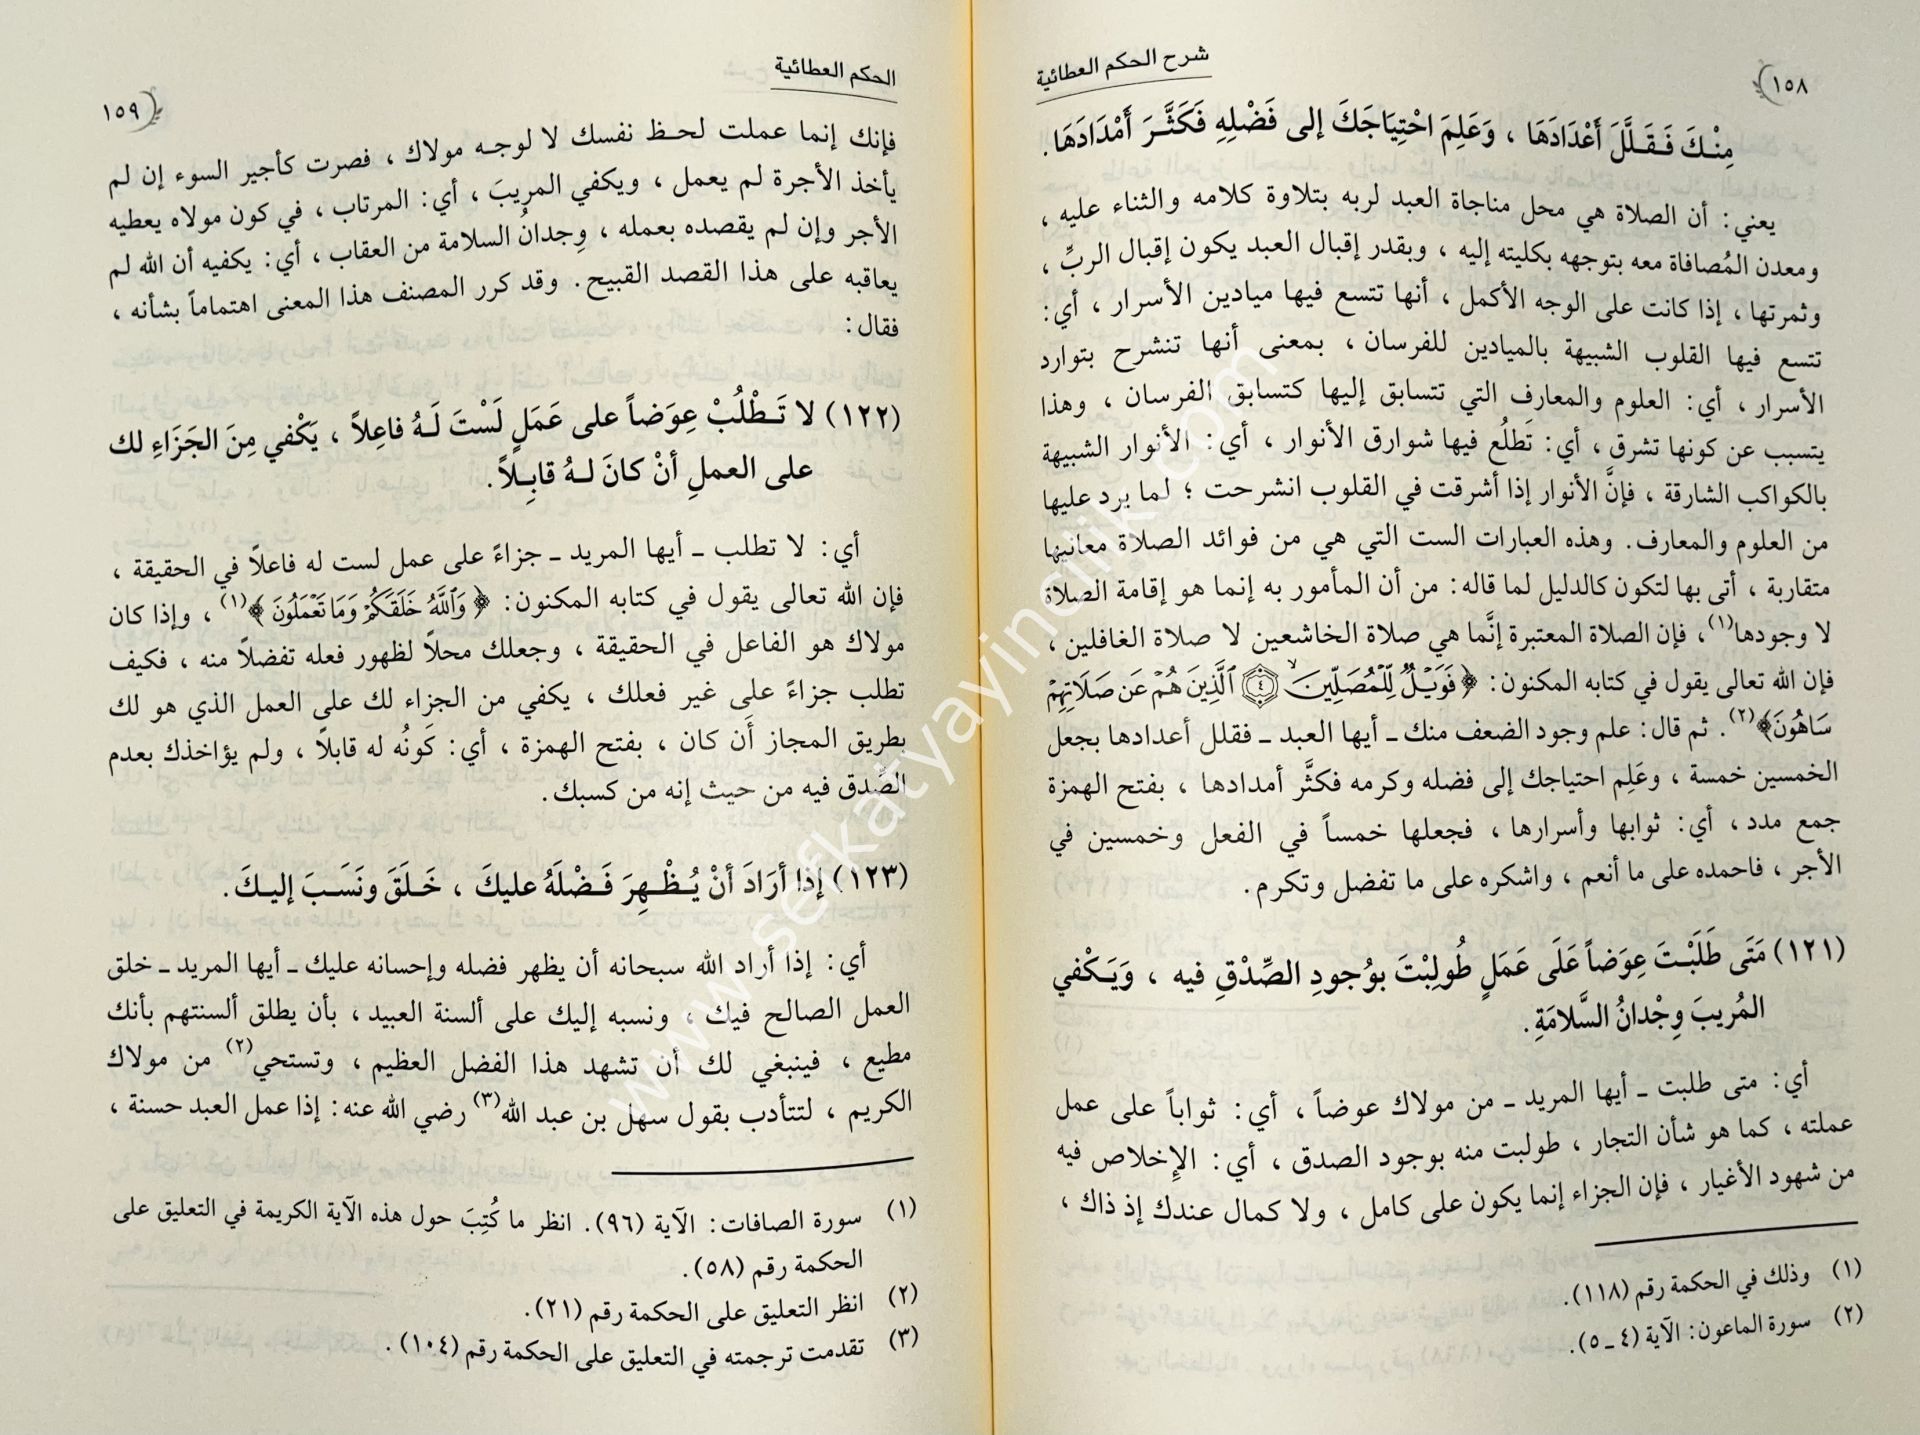 ١٥٨
شرح الحكم العطائية
مِنْكَ فَقَلَّلَ أَعْدَادَهَا ، وَعَلِمَ احْتِيَاجَكَ إلى فَضْلِهِ فَكَثَّرَ أَمْدَادَهَا .
يعني: أن الصلاة هي محل مناجاة العبد لربه بتلاوة كلامه والثناء عليه ،
ومعدن المُصافاة معه بتوجهه بكليته إليه ، وبقدر إقبال العبد يكون إقبال الربِّ ،
وثمرتها ، إذا كانت على الوجه الأكمل ، أنها تتسع فيها ميادين الأسرار ، أي:
تتسع فيها القلوب الشبيهة بالميادين للفرسان ، بمعنى أنها تنشرح بتوارد
الأسرار ، أي: العلوم والمعارف التي تتسابق إليها كتسابق الفرسان ، وهذا
يتسبب عن كونها تشرق ، أي: تَطلُع فيها شوارق الأنوار ، أي: الأنوار الشبيهة
بالكواكب الشارقة ، فإنَّ الأنوار إذا أشرقت في القلوب انشرحت ؛ لما يرد عليها
من العلوم والمعارف. وهذه العبارات الست التي هي من فوائد الصلاة معانيها
متقاربة ، أتى بها لتكون كالدليل لما قاله: من أن المأمور به إنما هو إقامة الصلاة
لا وجودها(١) ، فإن الصلاة المعتبرة إنَّما هي صلاة الخاشعين لا صلاة الغافلين ،
فإن الله تعالى يقول في كتابه المكنون: ﴿فَوَيْلٌ لِّلْمُصَلِّينَ ۙ ٤ ٱلَّذِينَ هُمْ عَن صَلَاتِهِمْ
سَاهُونَ﴾(٢). ثم قال: علم وجود الضعف منك ـ أيها العبد ـ فقلل أعدادها بجعل
الخمسين خمسة ، وعَلِم احتياجك إلى فضله وكرمه فكثَّر أمدادها ، بفتح الهمزة
جمع مدد ، أي: ثوابها وأسرارها ، فجعلها خمساً في الفعل وخمسين في
الأجر ، فاحمده على ما أنعم ، واشكره على ما تفضل وتكرم.
(١٢١) مَتَى طَلَبْتَ عِوَضاً عَلَى عَمَلٍ طُولِبْتَ بوُجودِ الصِّدْقِ فيه ، وَيَكْفي
المُريبَ وِجْدانُ السَّلامَةِ.
أي: متى طلبت ـ أيها المريد ـ من مولاك عوضاً ، أي: ثواباً على عمل
عملته ، كما هو شأن التجار ، طولبت منه بوجود الصدق ، أي: الإخلاص فيه
من شهود الأغيار ، فإن الجزاء إنما يكون على كامل ، ولا كمال عندك إذ ذاك ،
(١) وذلك في الحكمة رقم (١١٨).
(٢) سورة الماعون: الآية (٤ ـ ٥).
الحكم العطائية
١٥٩
فإنك إنما عملت لحظ نفسك لا لوجه مولاك ، فصرت كأجير السوء إن لم
يأخذ الأجرة لم يعمل ، ويكفي المريبَ ، أي: المرتاب ، في كون مولاه يعطيه
الأجر وإن لم يقصده بعمله ، وِجدانُ السلامة من العقاب ، أي: يكفيه أن الله لم
يعاقبه على هذا القصد القبيح. وقد كرر المصنف هذا المعنى اهتماماً بشأنه ،
فقال:
(١٢٢) لا تَطْلُبْ عِوَضاً على عَمَلٍ لَسْتَ لَهُ فاعِلاً ، يَكْفي مِنَ الجَزَاءِ لك
على العملِ أنْ كانَ لهُ قابِلاً.
أي: لا تطلب ـ أيها المريد ـ جزاءً على عمل لست له فاعلاً في الحقيقة ،
فإن الله تعالى يقول في كتابه المكنون: ﴿وَٱللَّهُ خَلَقَكُمْ وَمَا تَعْمَلُونَ﴾(١) ، وإذا كان
مولاك هو الفاعل في الحقيقة ، وجعلك محلاً لظهور فعله تفضلاً منه ، فكيف
تطلب جزاءً على غير فعلك ، يكفي من الجزاء لك على العمل الذي هو لك
بطريق المجاز أَن كان ، بفتح الهمزة ، أي: كَونُه له قابلاً ، ولم يؤاخذك بعدم
الصِّدق فيه من حيث إنه من كسبك.
(١٢٣) إذا أرَادَ أنْ يُظْهِرَ فَضْلَهُ عليكَ ، خَلَقَ ونَسَبَ إليكَ.
أي: إذا أراد الله سبحانه أن يظهر فضله وإحسانه عليك ـ أيها المريد ـ خلق
العمل الصالح فيك ، ونسبه إليك على ألسنة العبيد ، بأن يطلق ألسنتهم بأنك
مطيع ، فينبغي لك أن تشهد هذا الفضل العظيم ، وتستحي(٢) من مولاك
الكريم ، لتتأدب بقول سهل بن عبد الله(٣) رضي الله عنه: إذا عمل العبد حسنة ،
(١) سورة الصافات: الآية (٩٦). انظر ما كُتِبَ حول هذه الآية الكريمة في التعليق على
الحكمة رقم (٥٨).
(٢) انظر التعليق على الحكمة رقم (٢١).
(٣) تقدمت ترجمته في التعليق على الحكمة رقم (١٠٤).
www.sefkatyayincilik.com